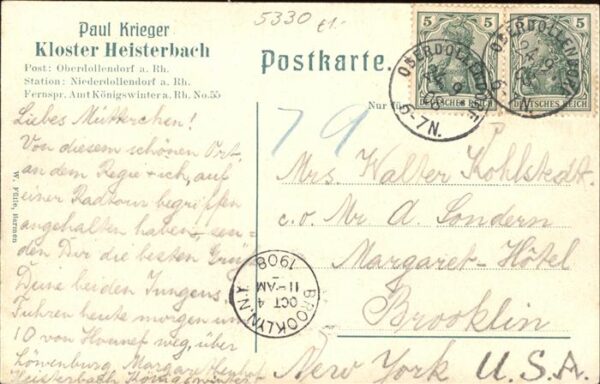 Paul Krieger
Kloster Heisterbach
Post: Oberdollendorf a. Rh.
Station: Niederdollendorf a. Rh.
Fernspr. Amt Königswinter a. Rh. No. 55
5330
Postkarte.
Nur für
5 5
DEUTSCHES REICH
5 5
DEUTSCHES REICH
OBERDOLLENDORF
5-7N.
OBERDOLLENDORF
79
Liebes Mütterchen!
Von diesem schönen Ort,
an dem Regie + ich, auf
einer Radtour begriffen
angehalten haben, sen-
den Dir die besten Grüße
Deine beiden Jungens.
Fuhren heute morgen um
10 von Honnef weg, über
Löwenburg Margarethenhof
Heisterbach Königswinter
Mrs. Walter Kohlstedt
c.o. Mr A. Sondern
Margaret-Hôtel
Brooklin
New York U.S.A.
BROOKLYN, N.Y.
OCT 4
11-AM
1908
W. Fülle, Barmen